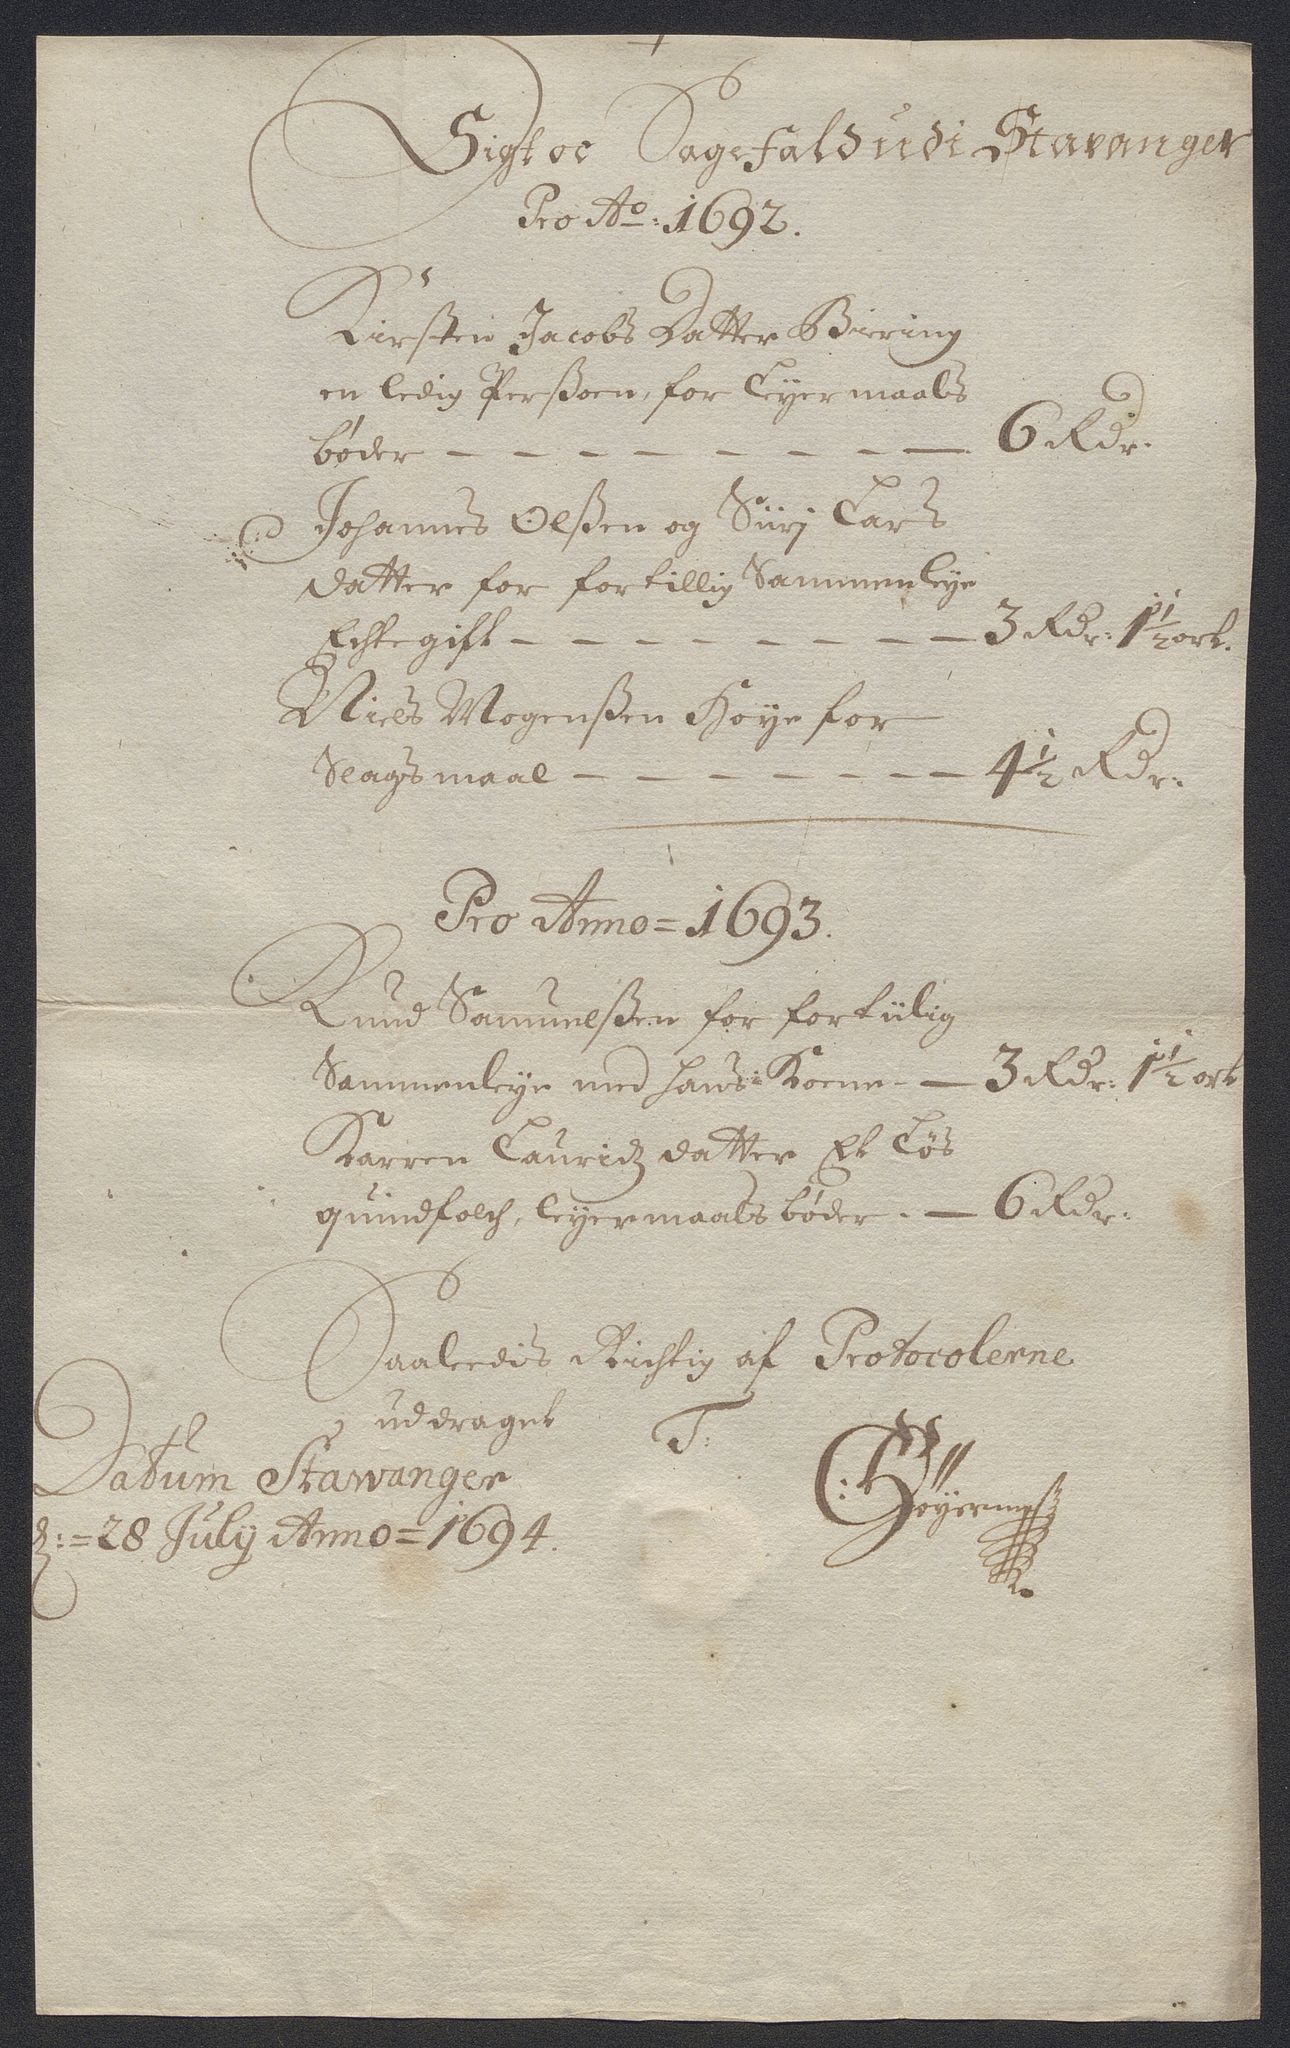 Sigt oc Sagefald udi Stavanger
Pro Ao: 1692.
Kirsten Jacobs Datter Biering
en ledig Persoen, for Leyermaals
bøder — 6 Rdr.
Johannes Olßen og Siirj Lars
datter for fortillig Sammenleye
Echtegift — 3 Rdr: 1½ ort.
Niels Mogenßen Høye for
Slagsmaal — 4½ Rdr:
Pro Anno = 1693.
Knud Samuelßen for fortiilig
Sammenleye med hans: Koene — 3 Rdr: 1½ ort
Karren Lauridz datter Et Løs
quindfolch, leyermaals bøder. — 6 Rdr:
Saaledis Richtig af Protocolerne
uddraget T:
Datum Stawanger
d: = 28 July Anno = 1694.